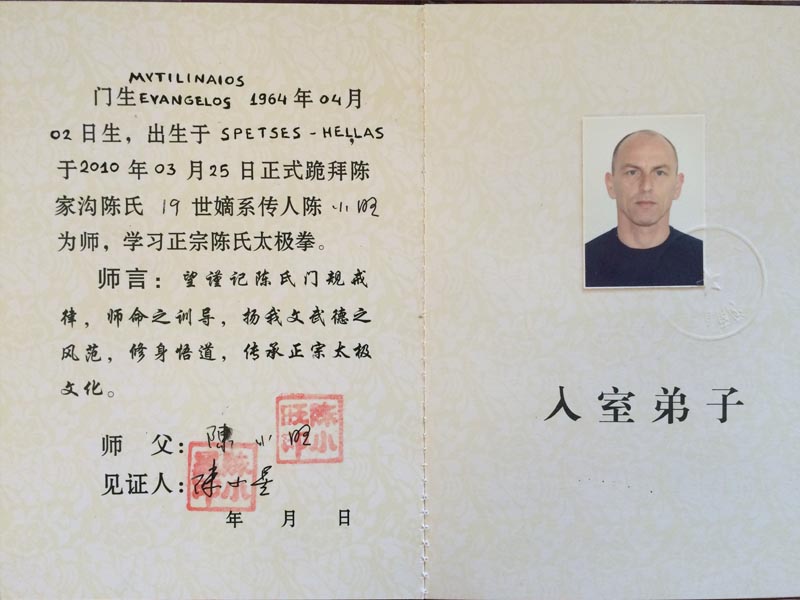 MYTILINAIOS
门生EVANGELOS 1964年04月
02日生，出生于 SPETSES-HELLAS，
于2010年03月25日正式跪拜陈
家沟陈氏 19 世嫡系传人陈小旺
为师，学习正宗陈氏太极拳。
师言：望谨记陈氏门规戒
律，师命之训导，扬我文武德之
风范，修身悟道，传承正宗太极
文化。
师　父：陈小旺
陈小旺印
见证人：陈小星
年　月　日
入室弟子